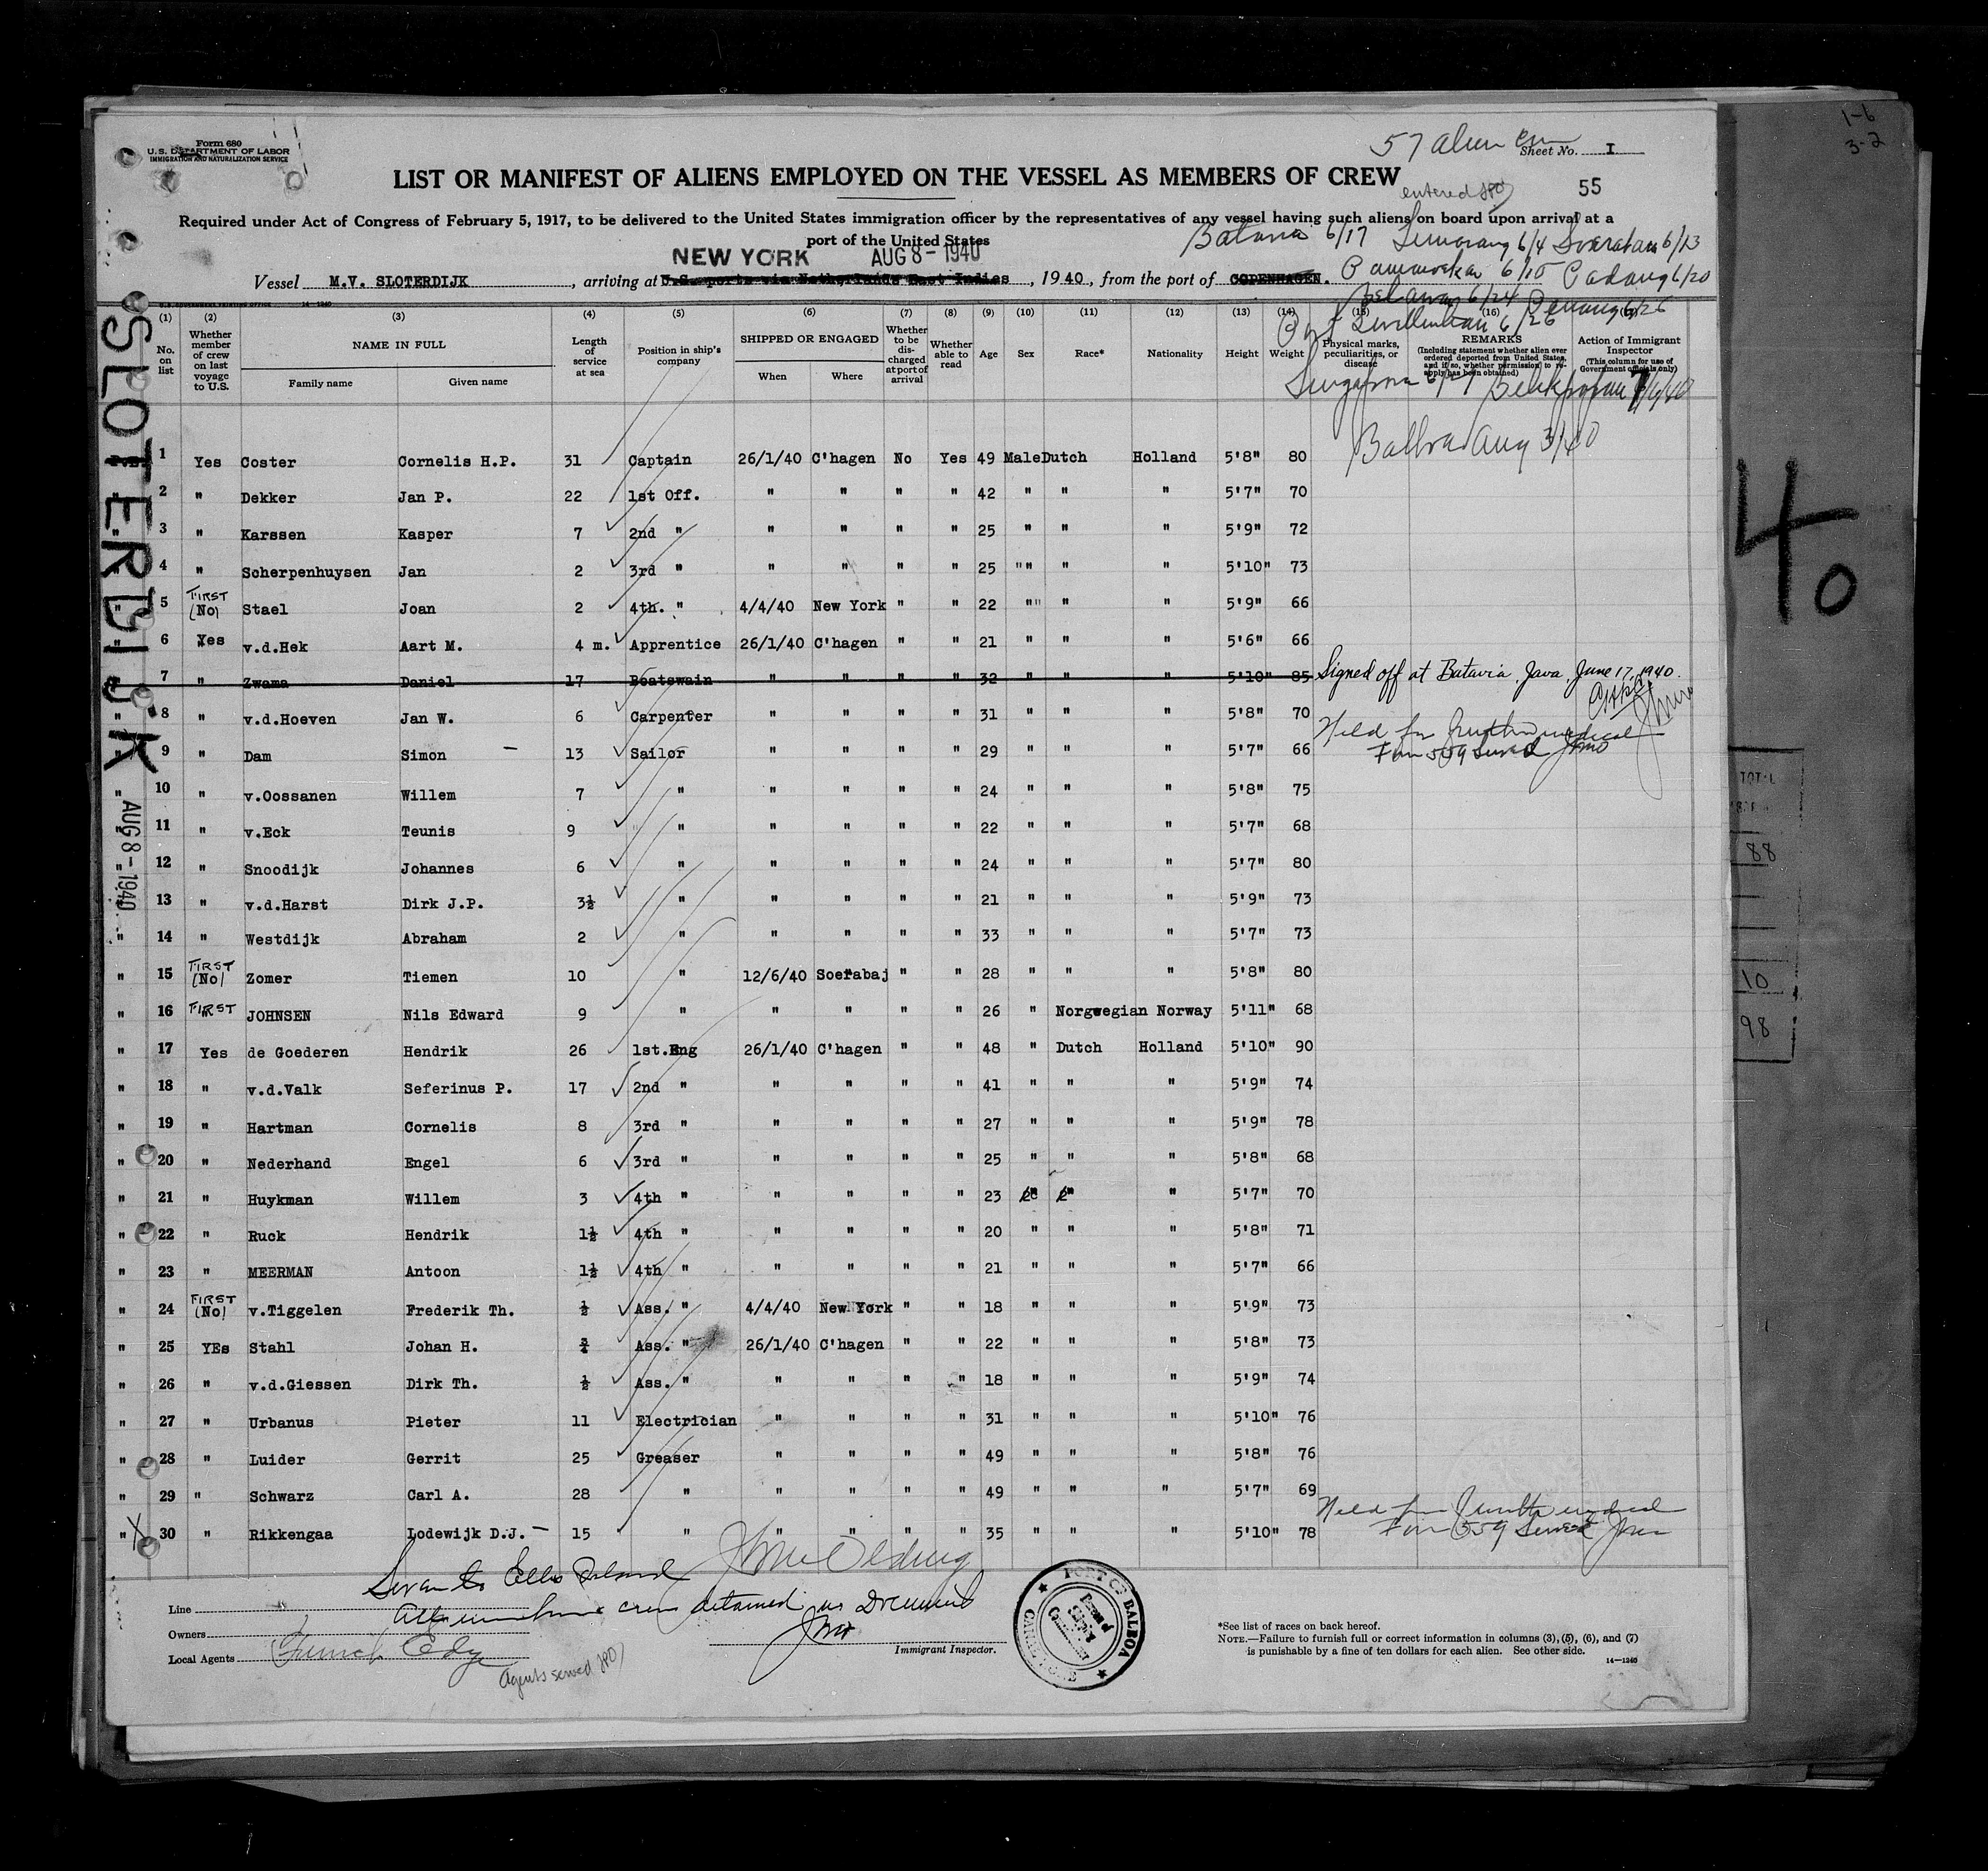 1-6
3-2
Form 680
U. S. DEPARTMENT OF LABOR
IMMIGRATION AND NATURALIZATION SERVICE
57 alien
Sheet No. I
LIST OR MANIFEST OF ALIENS EMPLOYED ON THE VESSEL AS MEMBERS OF CREW
entered JPO
55
Required under Act of Congress of February 5, 1917, to be delivered to the United States immigration officer by the representatives of any vessel having such aliens on board upon arrival at a
port of the United States
Batavia 6/17 Semarang 6/4 Soerabaia 6/13
NEW YORK AUG 8 - 1940
Vessel M.V. SLOTERDIJK , arriving at U.S. ports via Netherlands East Indies , 1940 , from the port of COPENHAGEN.
6/15 Padang 6/20
Belawan 6/24 Penang 6/26
Port Swettenham 6/26
Singapore 6/27 Balikpapan 7/6/40
Balboa Aug 3/40
U.S. GOVERNMENT PRINTING OFFICE 14-1240
(1) (2) (3) (4) (5) (6) (7) (8) (9) (10) (11) (12) (13) (14) (15) (16)
No. on list
Whether member of crew on last voyage to U.S.
NAME IN FULL
Family name
Given name
Length of service at sea
Position in ship's company
SHIPPED OR ENGAGED
When
Where
Whether to be discharged at port of arrival
Whether able to read
Age
Sex
Race*
Nationality
Height
Weight
Physical marks, peculiarities, or disease
REMARKS
(Including statement whether alien ever ordered deported from United States, and if so, whether permission to reapply has been obtained)
Action of Immigrant Inspector
(This column for use of Government officials only)
SLOTERDIJK
AUG 8 - 1940
1 Yes Coster Cornelis H.P. 31 Captain 26/1/40 C'hagen No Yes 49 Male Dutch Holland 5'8" 80
2 " Dekker Jan P. 22 1st Off. " " " " 42 " " " 5'7" 70
3 " Karssen Kasper 7 2nd " " " " " 25 " " " 5'9" 72
4 " Scherpenhuysen Jan 2 3rd " " " " " 25 "" " " 5'10" 73
5 FIRST (No) Stael Joan 2 4th. " 4/4/40 New York " " 22 "" " " 5'9" 66
6 Yes v.d.Hek Aart M. 4 m. Apprentice 26/1/40 C'hagen " " 21 " " " 5'6" 66
7 " Zwama Daniel 17 Boatswain " " " " 32 " " " 5'10" 85 Signed off at Batavia, Java, June 17, 1940.
8 " v.d.Hoeven Jan W. 6 Carpenter " " " " 31 " " " 5'8" 70
9 " Dam Simon - 13 Sailor " " " " 29 " " " 5'7" 66 Held for further medical
Form 559 served
10 " v.Oossanen Willem 7 " " " " " 24 " " " 5'8" 75
11 " v.Eck Teunis 9 " " " " " 22 " " " 5'7" 68
12 " Snoodijk Johannes 6 " " " " " 24 " " " 5'7" 80
13 " v.d.Harst Dirk J.P. 3½ " " " " " 21 " " " 5'9" 73
" 14 " Westdijk Abraham 2 " " " " " 33 " " " 5'7" 73
" 15 FIRST (No) Zomer Tiemen 10 " 12/6/40 Soerabaj " " 28 " " " 5'8" 80
" 16 FIRST JOHNSEN Nils Edward 9 " " " " " 26 " Norgwegian Norway 5'11" 68
" 17 Yes de Goederen Hendrik 26 1st.Eng 26/1/40 C'hagen " " 48 " Dutch Holland 5'10" 90
" 18 " v.d.Valk Seferinus P. 17 2nd " " " " " 41 " " " 5'9" 74
" 19 " Hartman Cornelis 8 3rd " " " " " 27 " " " 5'9" 78
" 20 " Nederhand Engel 6 3rd " " " " " 25 " " " 5'8" 68
" 21 " Huykman Willem 3 4th " " " " " 23 " " " 5'7" 70
" 22 " Ruck Hendrik 1½ 4th " " " " " 20 " " " 5'8" 71
" 23 " MEERMAN Antoon 1½ 4th " " " " " 21 " " " 5'7" 66
" 24 FIRST (No) v.Tiggelen Frederik Th. ½ Ass. " 4/4/40 New York " " 18 " " " 5'9" 73
" 25 YEs Stahl Johan H. ¾ Ass. " 26/1/40 C'hagen " " 22 " " " 5'8" 73
" 26 " v.d.Giessen Dirk Th. ½ Ass. " " " " " 18 " " " 5'9" 74
" 27 " Urbanus Pieter 11 Electrician " " " " 31 " " " 5'10" 76
" 28 " Luider Gerrit 25 Greaser " " " " 49 " " " 5'8" 76
" 29 " Schwarz Carl A. 28 " " " " " 49 " " " 5'7" 69
" X 30 " Rikkengaa Lodewijk D.J. - 15 " " " " " 35 " " " 5'10" 78 Held for further medical
Form 559 served
to Ellis Island
crew detained
Line
Owners
Local Agents Funch Edye
Agents served JPO
Immigrant Inspector.
PORT OF BALBOA
CANAL ZONE
*See list of races on back hereof.
NOTE.—Failure to furnish full or correct information in columns (3), (5), (6), and (7)
is punishable by a fine of ten dollars for each alien. See other side.
14—1240
40
88
10
98